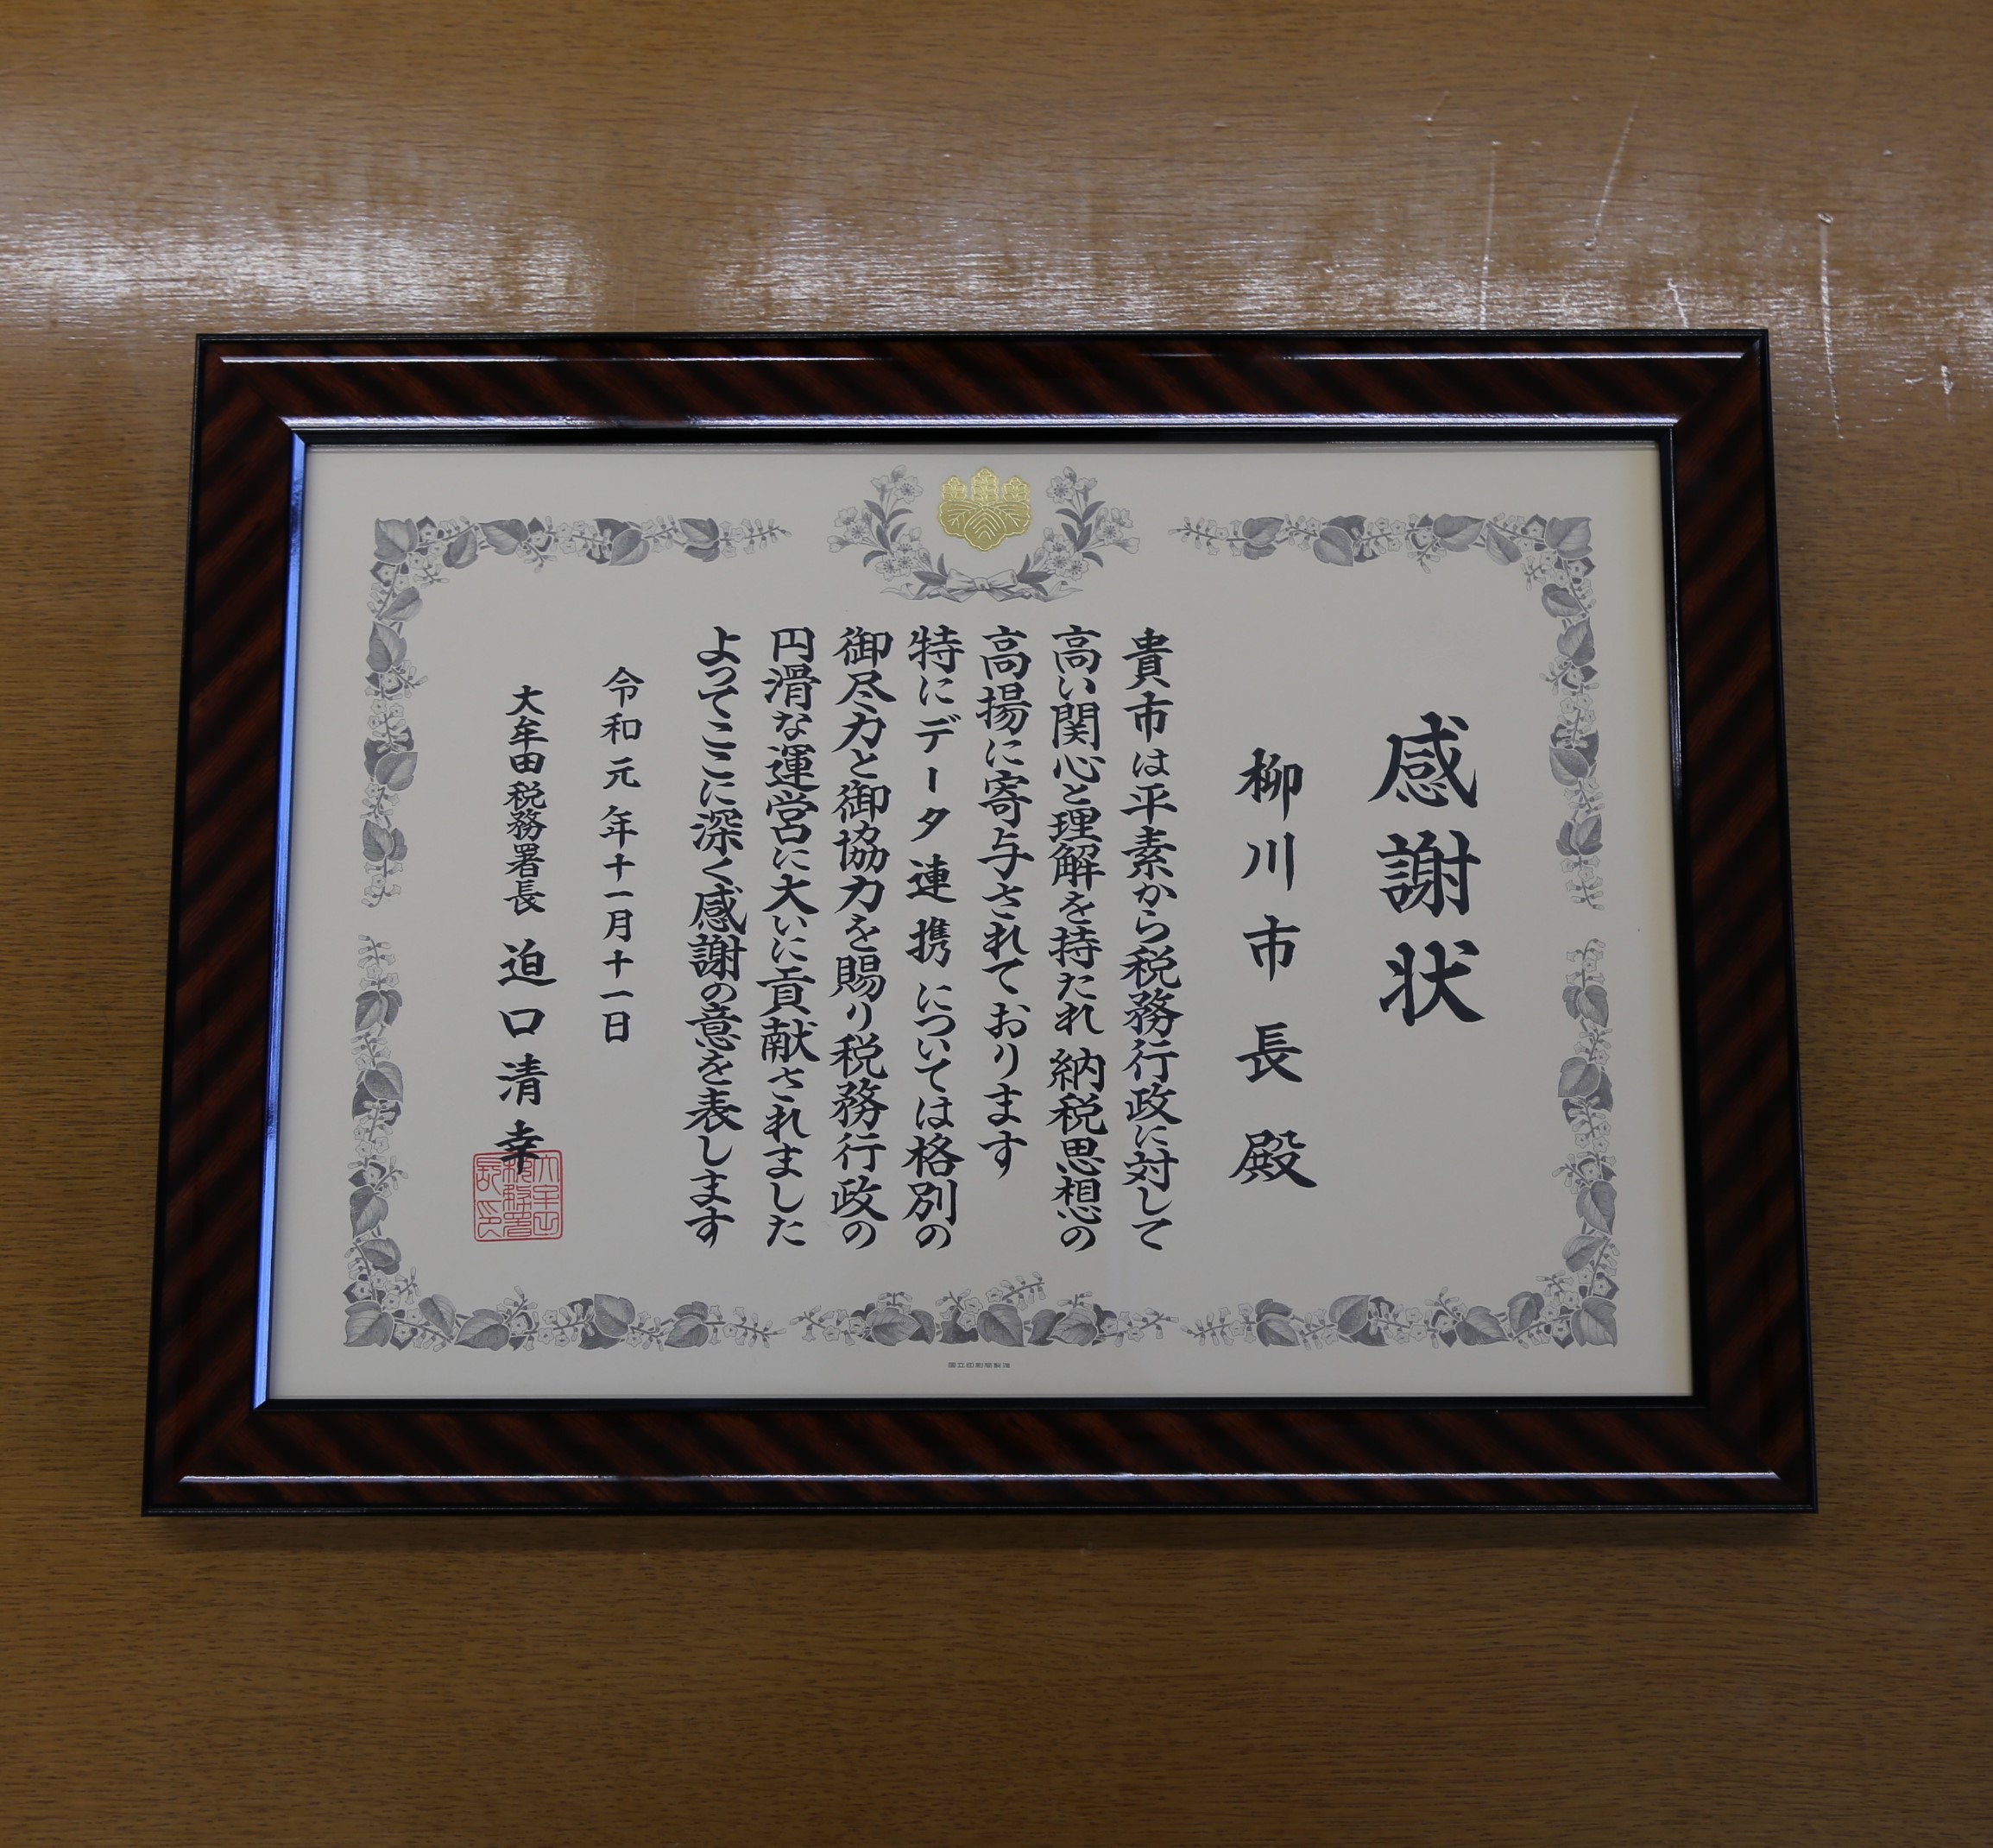 感謝状
柳川市長殿
貴市は平素から税務行政に対して
高い関心と理解を持たれ納税思想の
高揚に寄与されております
特にデータ連携については格別の
御尽力と御協力を賜り税務行政の
円滑な運営に大いに貢献されました
よってここに深く感謝の意を表します
令和元年十一月十一日
大牟田税務署長 迫口清幸
大牟田税務署長印
国立印刷局製造